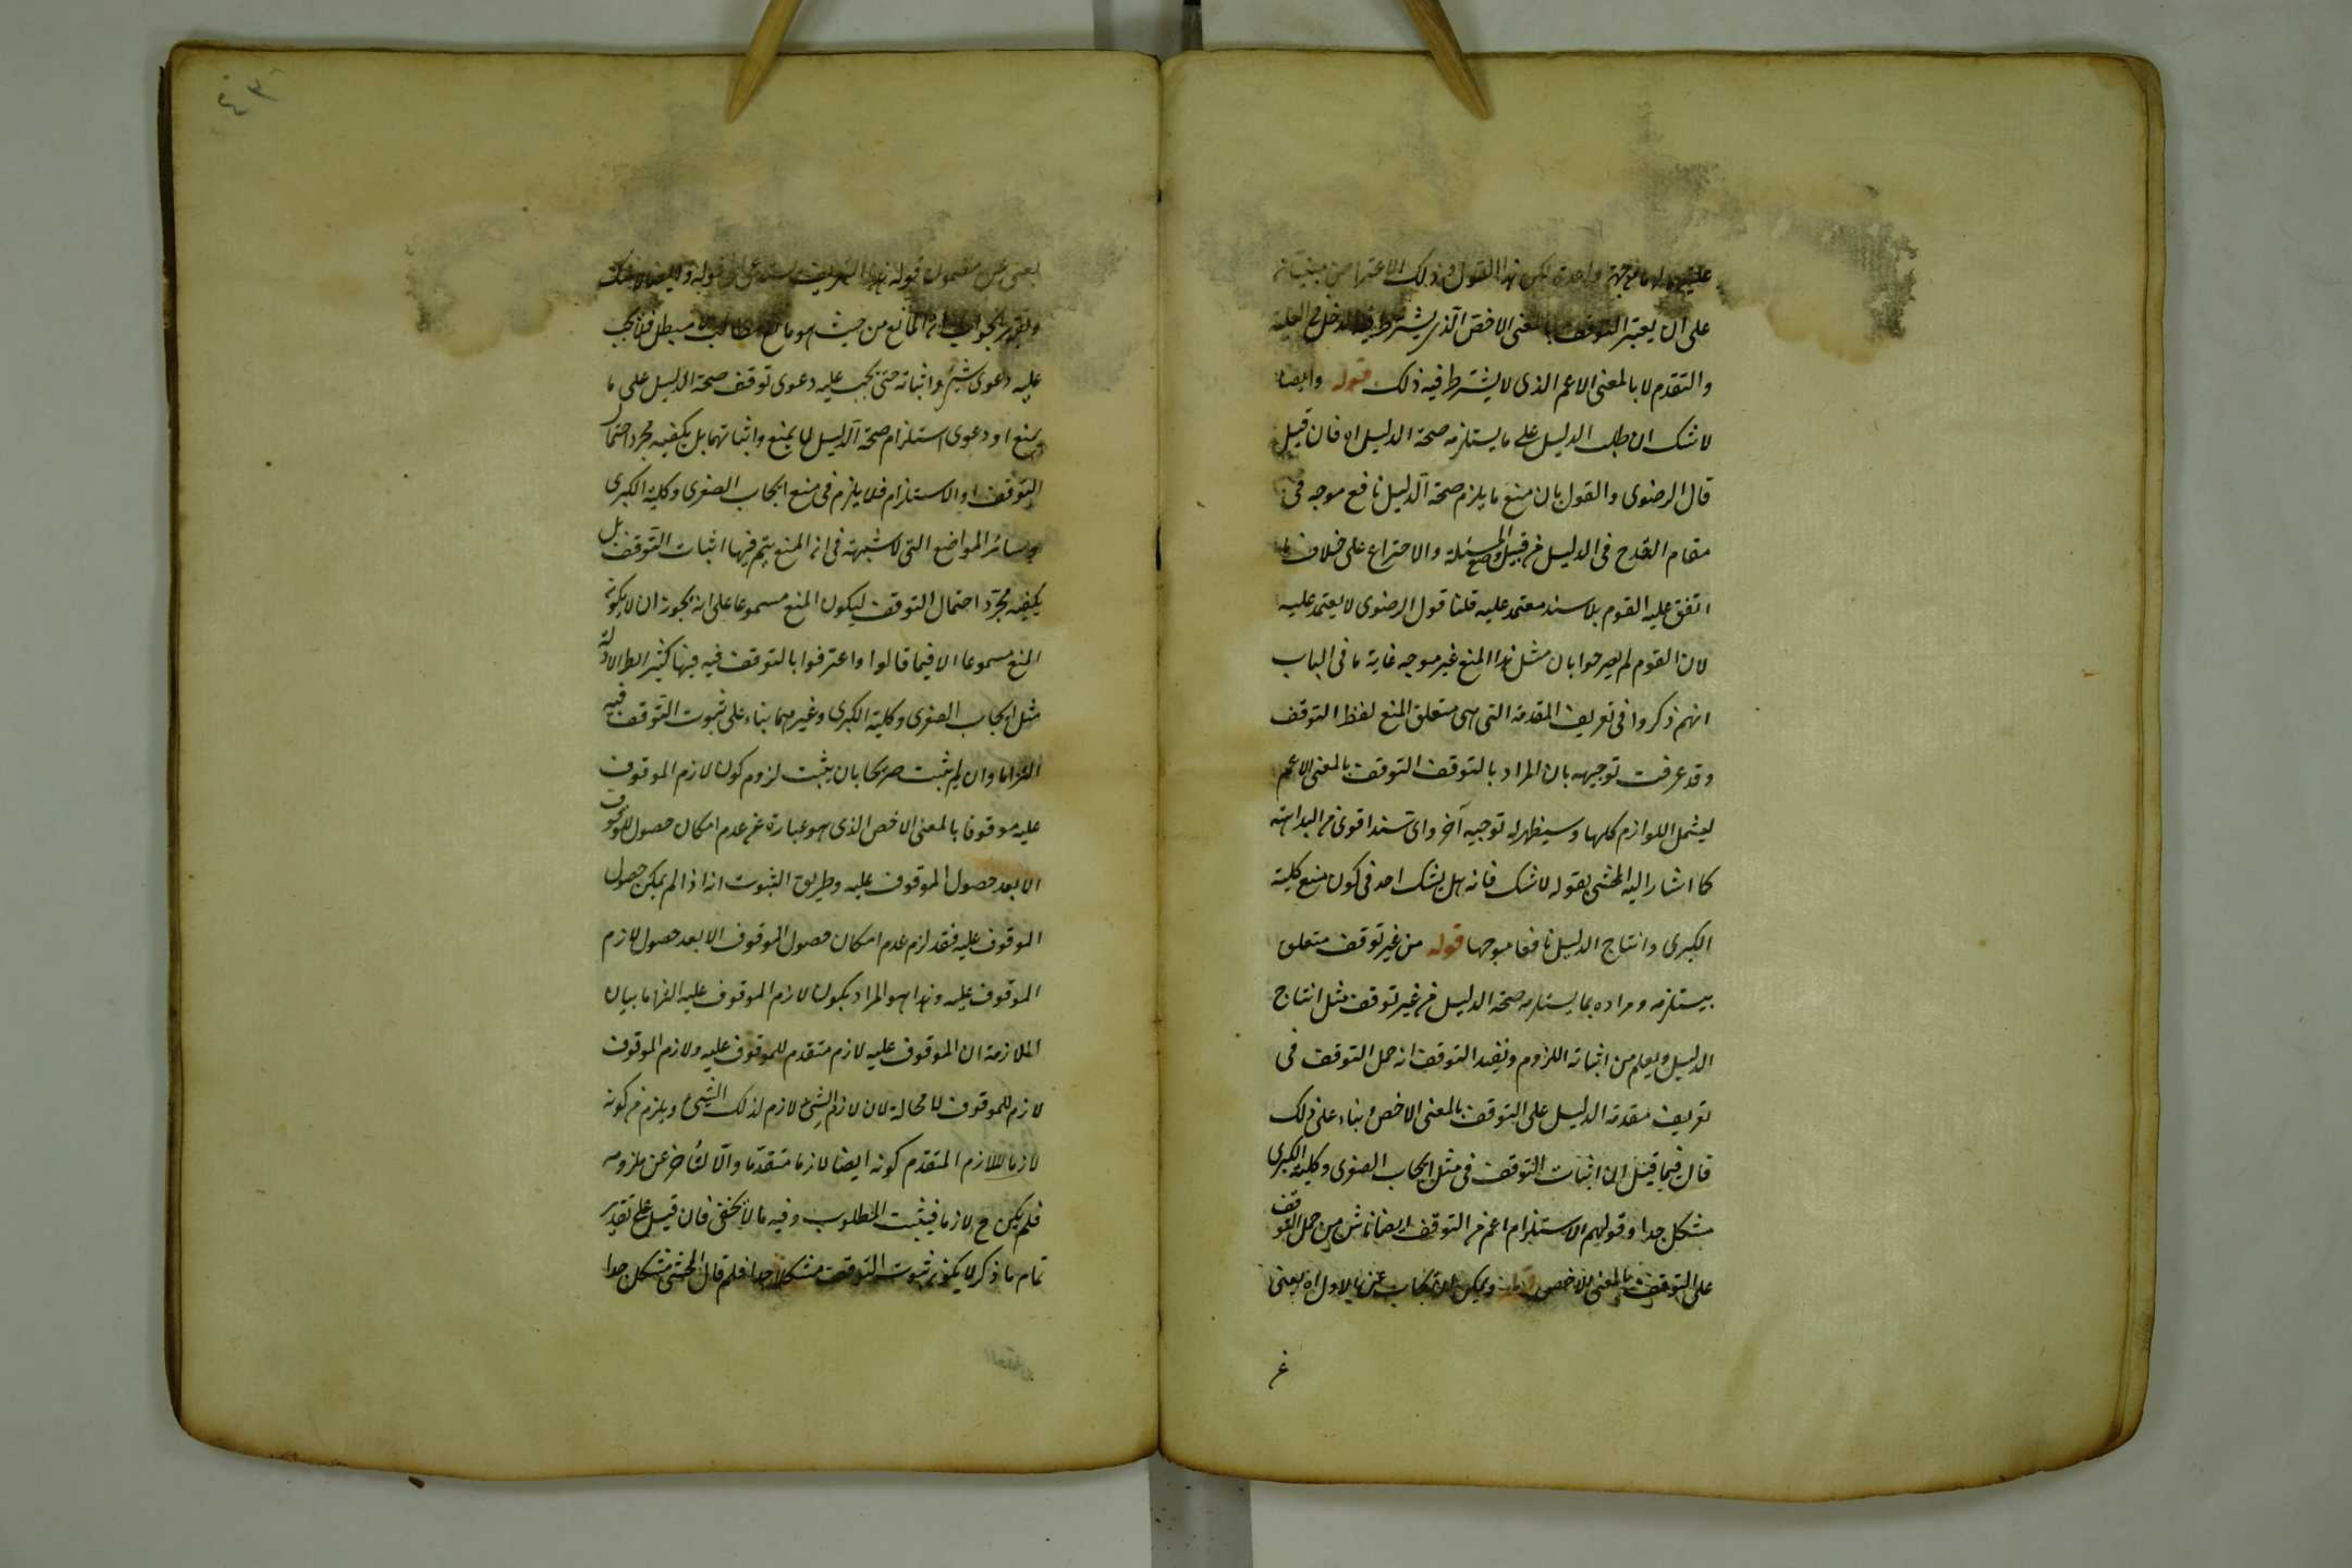 على ان يعتبر التوقف بالمعنى الاخص الذى يشترط فيه
والتقدم لا بالمعنى الاعم الذى لا يشترط فيه ذلك قوله وايضا
لا شك ان طلب الدليل على ما يستلزمه صحة الدليل اه فان قيل
قال الرضوى والقول بان منع ما يلزم صحة الدليل نافع موجه فى
مقام القدح فى الدليل من قبيل وضع المسئلة والاختراع على خلاف ما
اتفق عليه القوم بلا سند معتمد عليه قلنا قول الرضوى لا يعتمد عليه
لان القوم لم يصرحوا بان مثل هذا المنع غير موجه غاية ما فى الباب
انهم ذكروا فى تعريف المقدمة التى هى متعلق المنع لفظ التوقف
وقد عرفت توجيهه بان المراد بالتوقف التوقف بالمعنى الاعم
ليشمل اللوازم كلها وسيظهر له توجيه آخر واى سند اقوى من البداهة
كما اشار اليه المحشى بقوله لا شك فانه هل يشك احد فى كون منع كلية
الكبرى وانتاج الدليل نافعا موجها قوله من غير توقف متعلق
بيستلزمه ومراده بما يستلزمه صحة الدليل من غير توقف مثل انتاج
الدليل ويعلم من اثباته اللزوم ونفيه التوقف انه حمل التوقف فى
تعريف مقدمة الدليل على التوقف بالمعنى الاخص وبناء على ذلك
قال فيما قيل ان اثبات التوقف فى مثل ايجاب الصغرى وكلية الكبرى
مشكل جدا وقولهم الاستلزام اعم من التوقف ايضا ناش من حمل التوقف
على التوقف بالمعنى الاخص ويمكن ان يجاب عن الاول اه يعنى
عن
٤٣
يعنى عن مضمون قوله هذا التعريف
وتقرير الجواب ان المانع من حيث هو مانع طالب لا مبطل فلا يجب
عليه دعوى شئ واثباته حتى يجب عليه دعوى توقف صحة الدليل على ما
يمنع او دعوى استلزام صحة الدليل لما يمنع واثباتهما بل يكفيه مجرد احتمال
التوقف او الاستلزام فلا يلزم فى منع ايجاب الصغرى وكلية الكبرى
وسائر المواضع التى لا شبهة فى ان المنع يتم فيها اثبات التوقف بل
يكفيه مجرد احتمال التوقف ليكون المنع مسموعا على انه يجوز ان لا يكون
المنع مسموعا الا فيما قالوا واعترفوا بالتوقف فيه فيها كشرائط الادلة
مثل ايجاب الصغرى وكلية الكبرى وغيرهما بناء على ثبوت التوقف فيه
التزاما وان لم يثبت صريحا بان يثبت لزوم كون لازم الموقوف
عليه موقوفا بالمعنى الاخص الذى هو عبارة عن عدم امكان حصول الموقوف
الا بعد حصول الموقوف عليه وطريق الثبوت انه اذا لم يمكن حصول
الموقوف عليه فقد لزم عدم امكان حصول الموقوف الا بعد حصول لازم
الموقوف عليه وهذا هو المراد بكون لازم الموقوف عليه التزاما بيان
الملازمة ان الموقوف عليه لازم متقدم للموقوف عليه ولازم الموقوف
لازم للموقوف لا محالة لان لازم الشئ لازم لذلك الشئ ويلزم من كونه
لازما للازم المتقدم كونه ايضا لازما متقدما والا لتأخر عن ملزومه
فلم يكن ح لازما فيثبت المطلوب وفيه ما لا يخفى فان قيل على تقدير
تمام ما ذكر لا يكون ثبوت التوقف مشكلا جدا فلم قال المحشى مشكل جدا